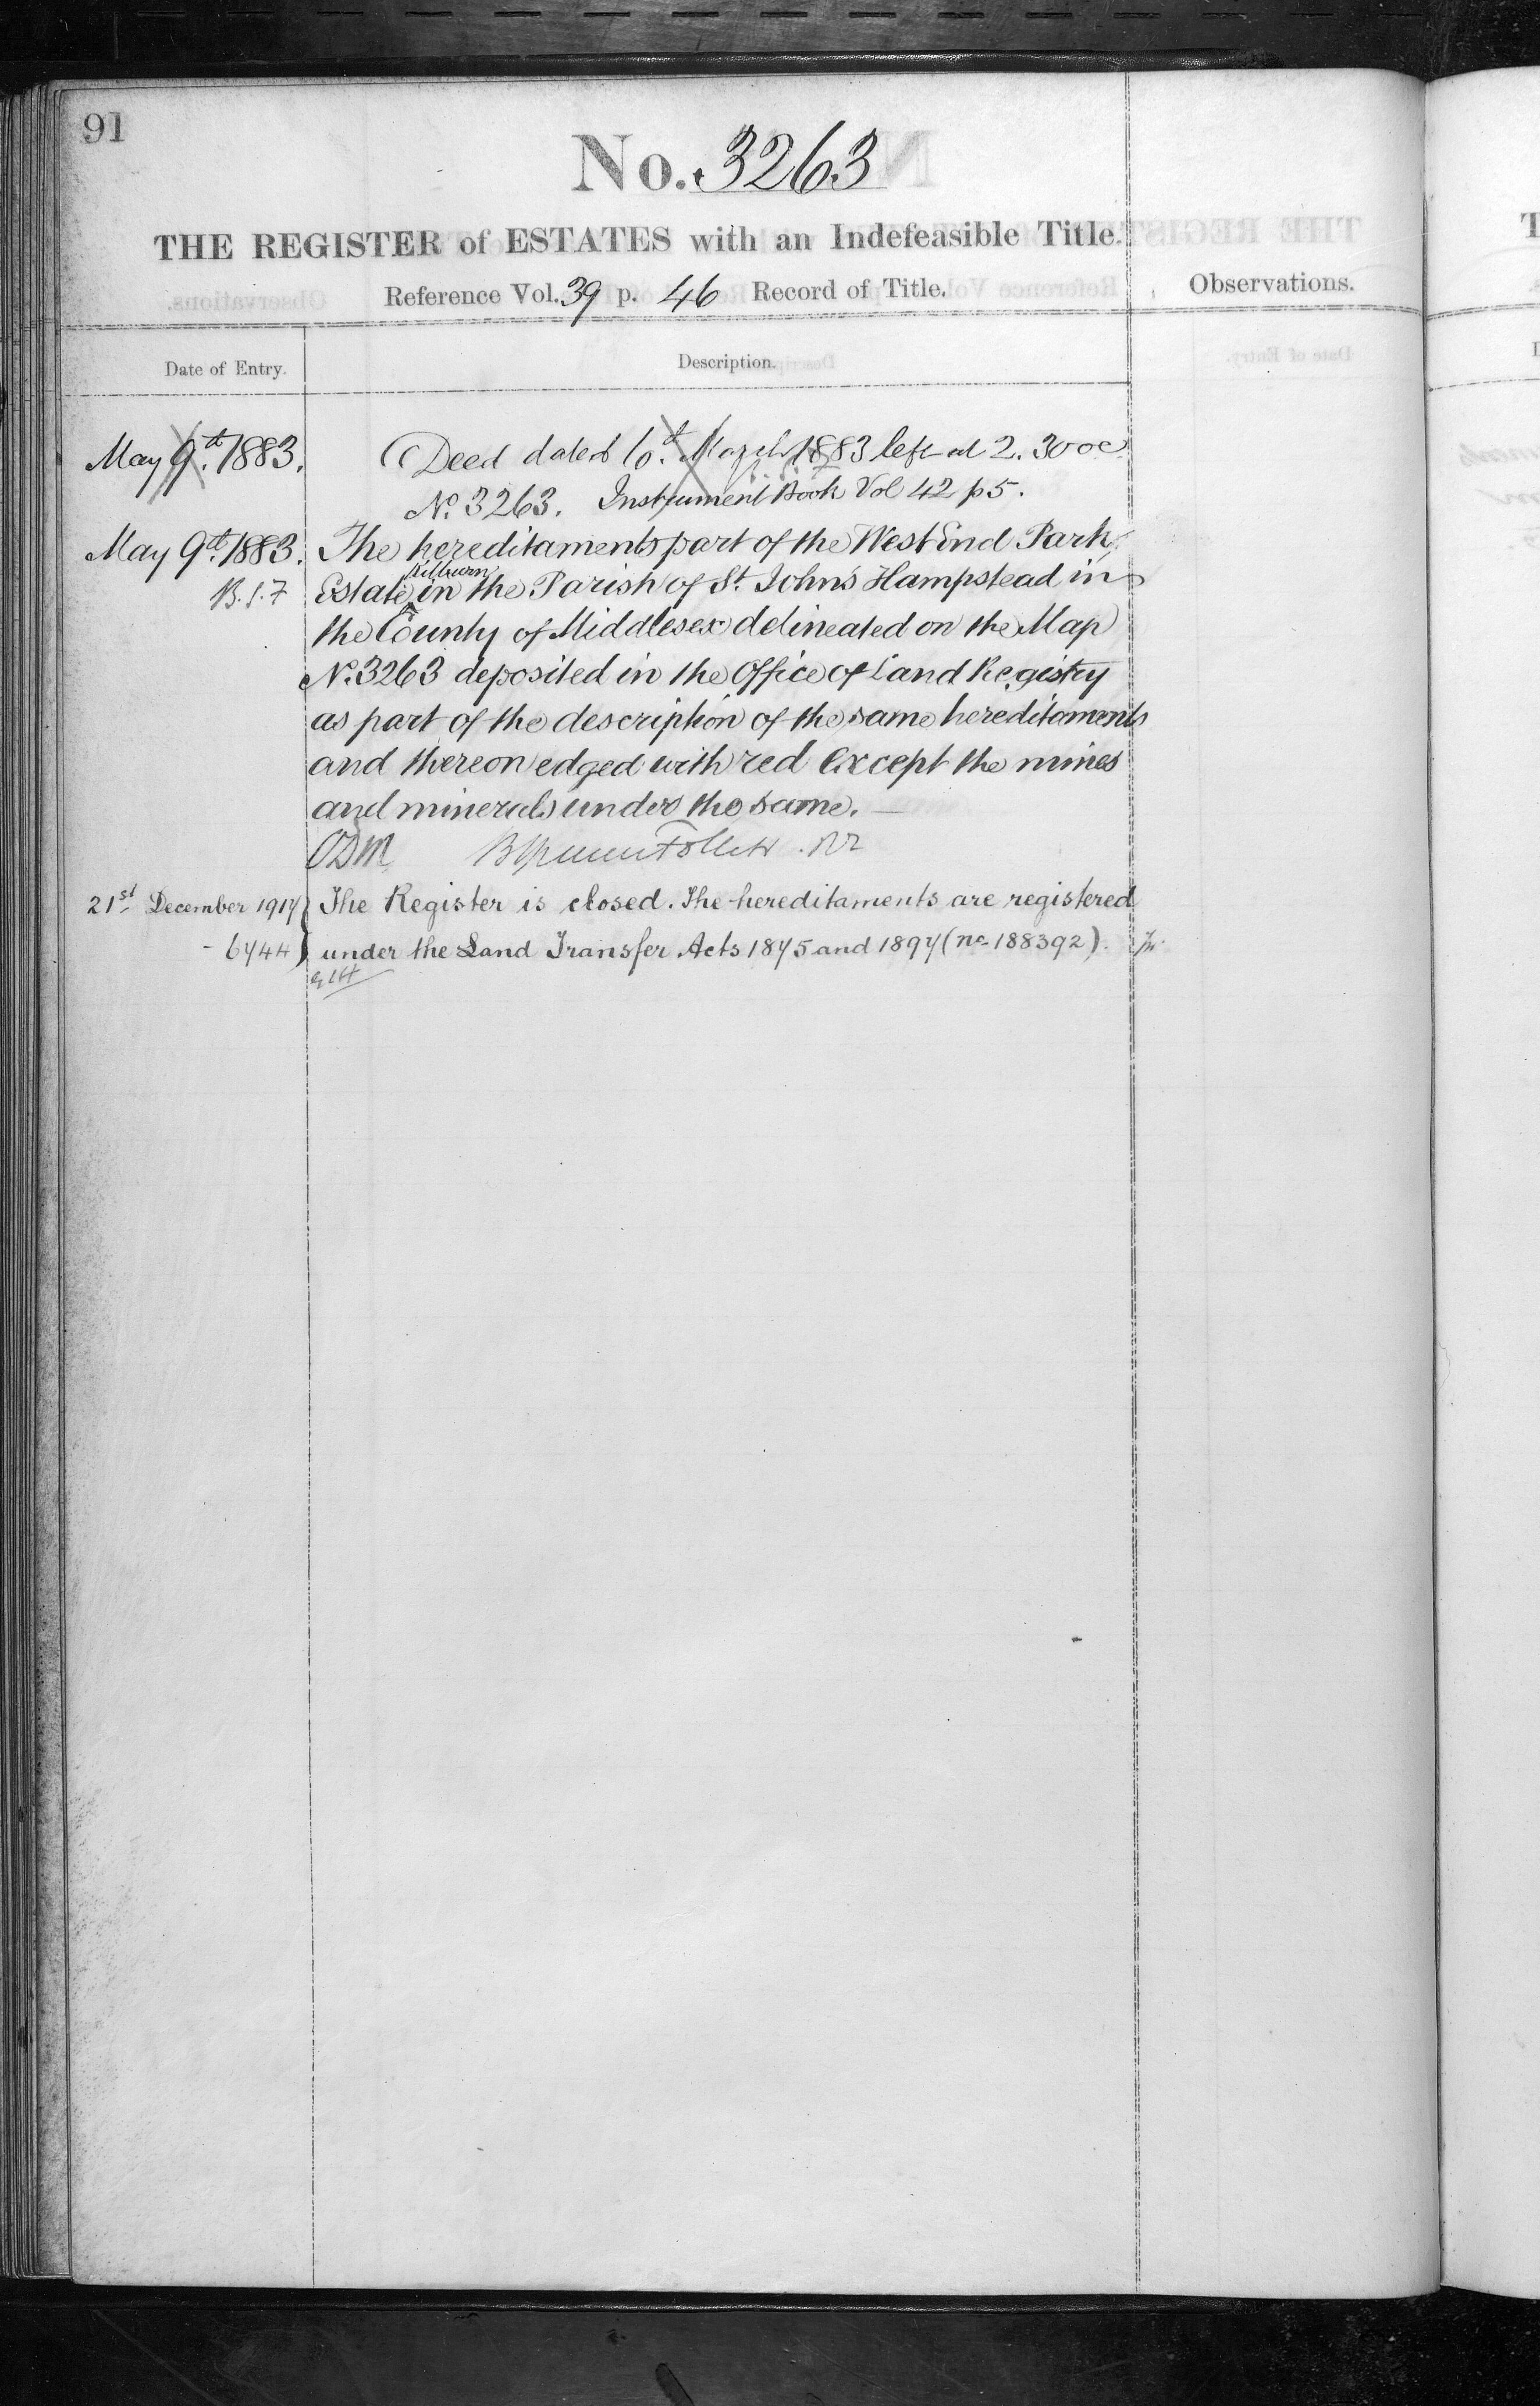 91
No. 3263
THE REGISTER of ESTATES with an Indefeasible Title.
Reference Vol. 39 p. 46 Record of Title.
Observations.
Date of Entry.
Description.
May 9th. 1883.
Deed dated 10th. March 1883 left at 2.30 oc
No. 3263. Instrument Book Vol 42 p 5.
May 9th. 1883.
The hereditaments part of the West End Park
Kilburn
B.1.7
Estate in the Parish of St. John's Hampstead in
the County of Middlesex delineated on the Map
No. 3263 deposited in the Office of Land Registry
as part of the description of the same hereditaments
and thereon edged with red except the mines
and minerals under the same.
ODM
21st December 1917
The Register is closed. The hereditaments are registered
6744
under the Land Transfer Acts 1875 and 1897 (no 188392).